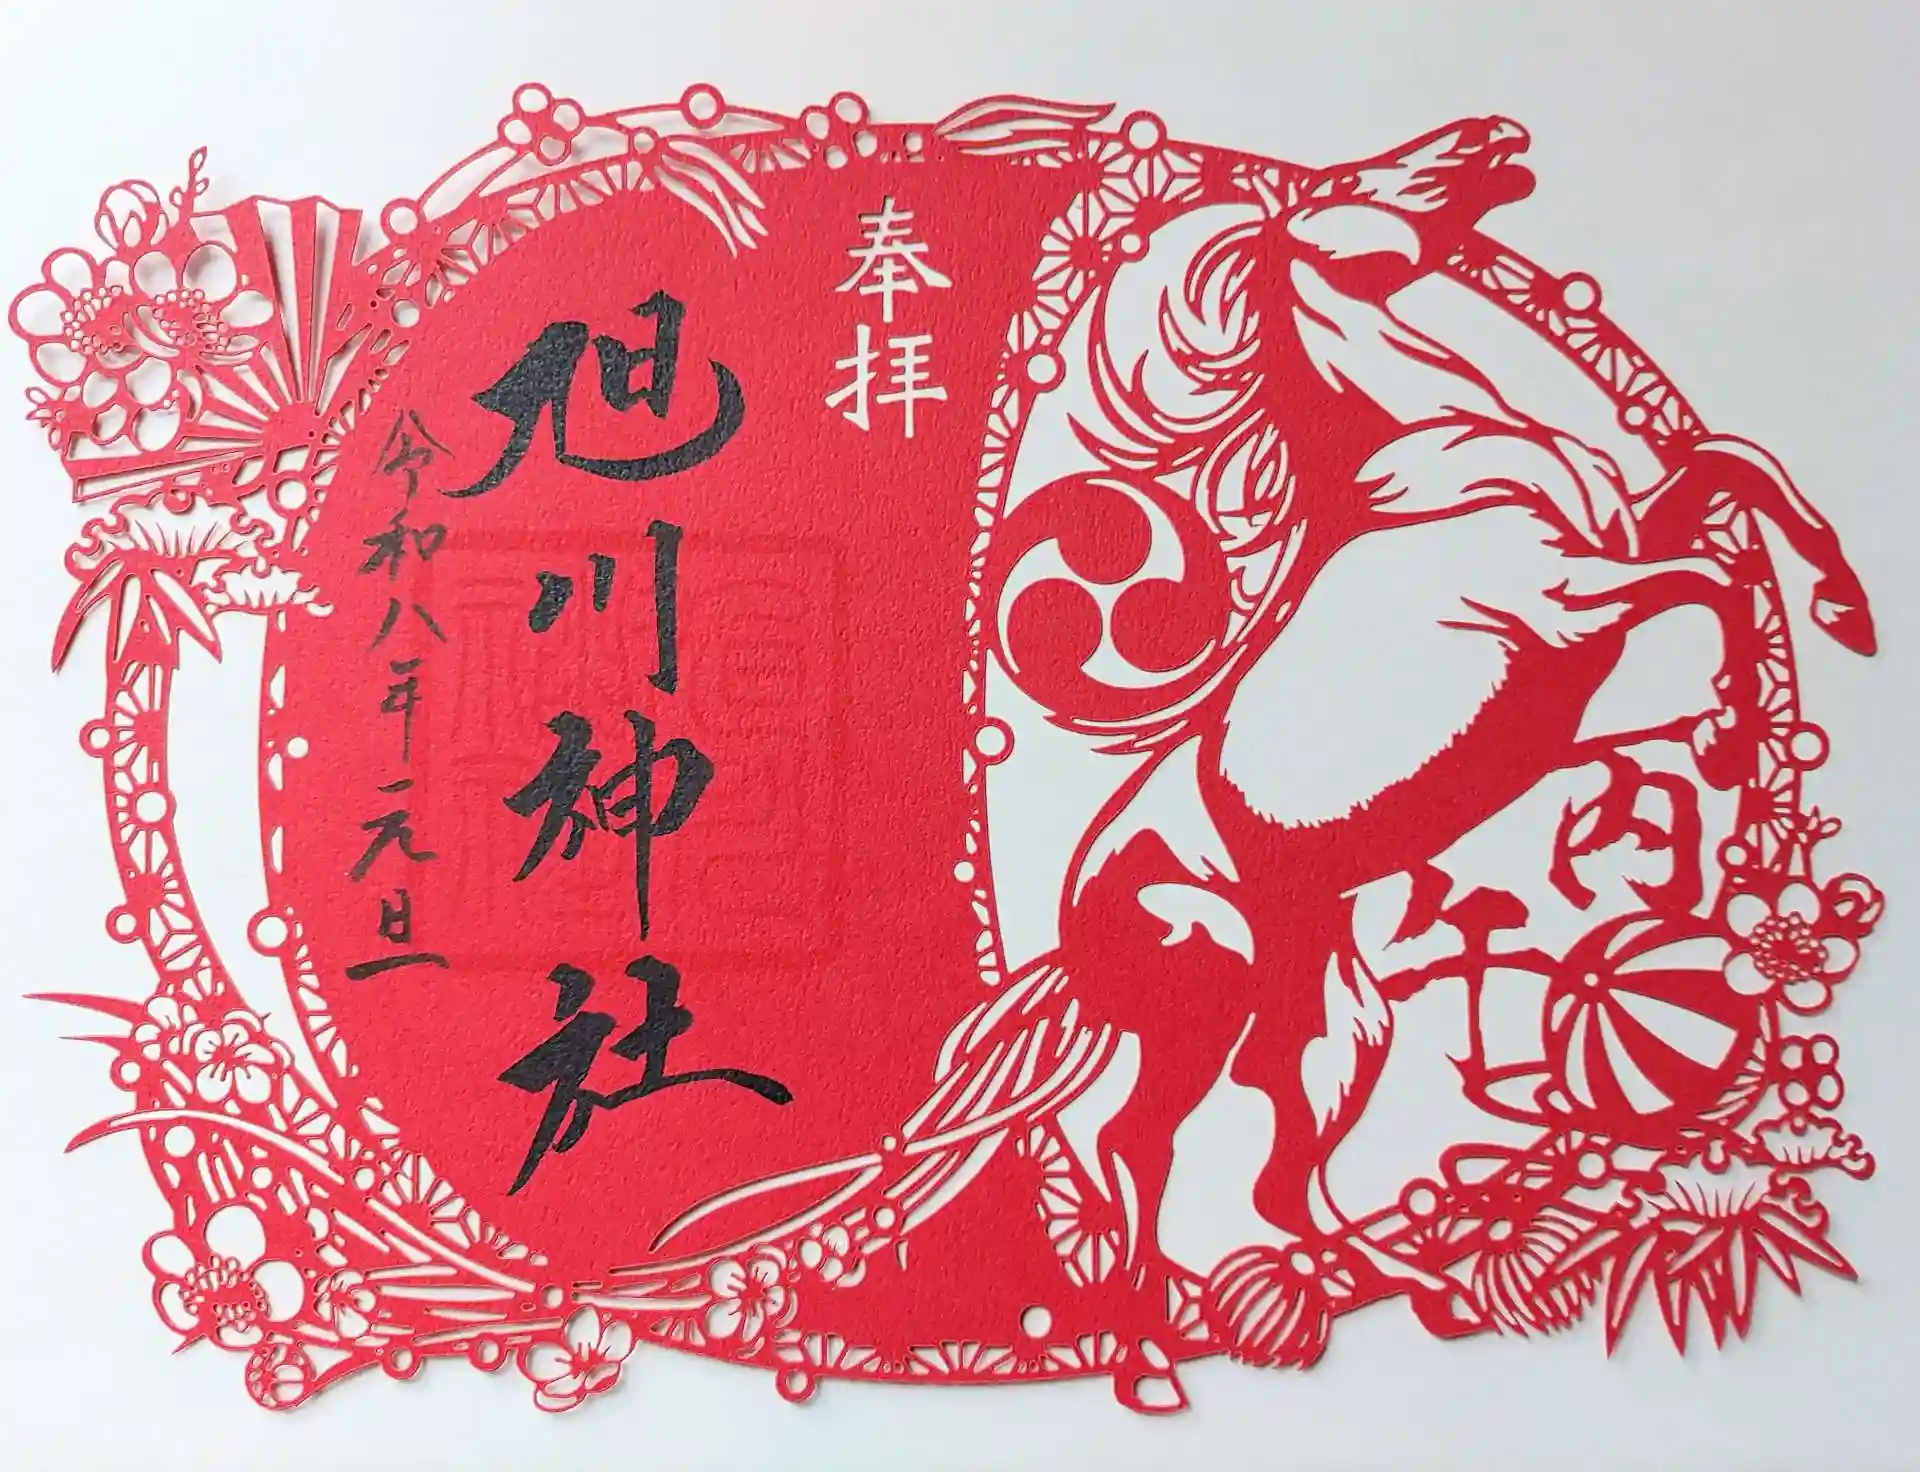 丙午
奉拝
旭川神社
令和八年元旦